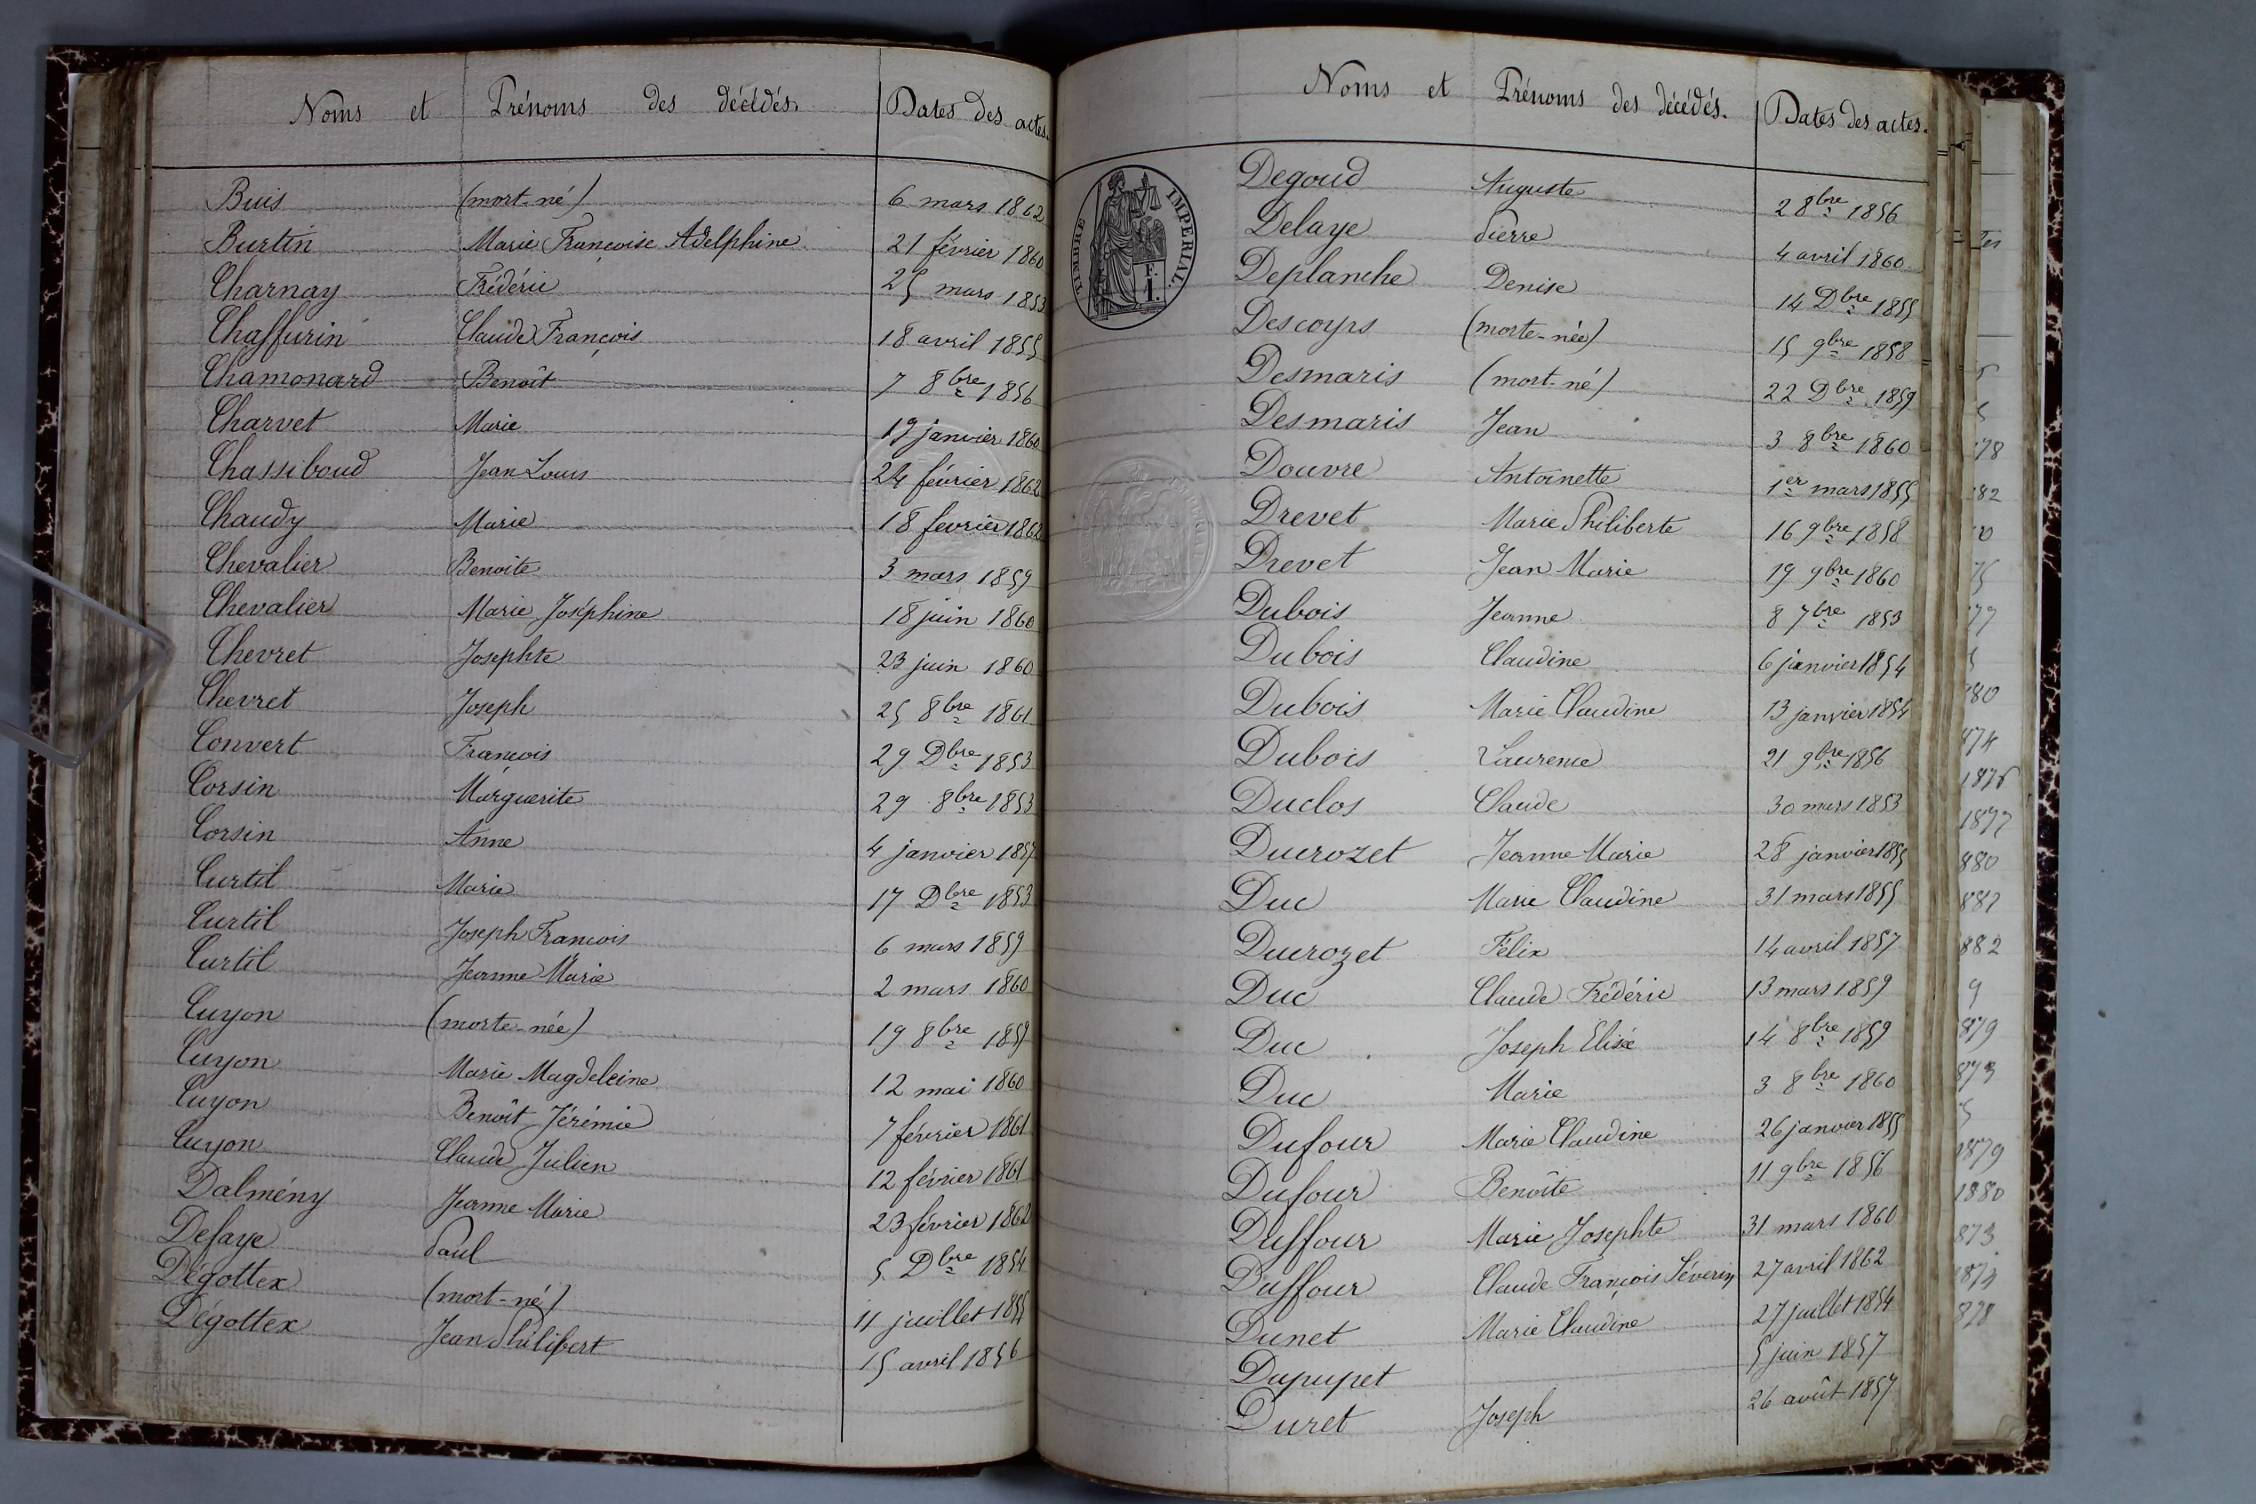 Noms et Prénoms des décédés. Dates des actes.
Buis (mort-né) 6 mars 1862
Burtin Marie Françoise Adelphine 21 février 1860
Charnay Frédéric 25 mars 1853
Chaffurin Claude François 18 avril 1855
Chamonard Benoît 7 8bre 1856
Charvet Marie 19 janvier 1860
Chassiboud Jean Louis 24 février 1862
Chaudy Marie 18 février 1862
Chevalier Benoite 3 mars 1859
Chevalier Marie Joséphine 18 juin 1860
Chevret Josephte 23 juin 1860
Chevret Joseph 25 8bre 1861
Convert François 29 Dbre 1853
Corsin Marguerite 29 8bre 1853
Corsin Anne 4 janvier 1857
Curtil Marie 17 Dbre 1853
Curtil Joseph François 6 mars 1859
Curtil Jeanne Marie 2 mars 1860
Cuyon (morte-née) 19 8bre 1859
Cuyon Marie Magdeleine 12 mai 1860
Cuyon Benoît Jérémie 7 février 1861
Cuyon Claude Julien 12 février 1861
Dalmény Jeanne Marie 23 février 1862
Defaye Paul 5 Dbre 1854
Dégottex (mort-né) 11 juillet
Dégottex Jean Philibert 15 avril 1856
Noms et Prénoms des décédés. Dates des actes.
TIMBRE IMPERIAL.
Degoud Auguste 2 8bre 1856
Delaye Pierre 4 avril 1860
Deplanche Denise 14 Dbre 1855
Descoyrs (morte-née) 15 9bre 1858
Desmaris (mort-né) 22 Dbre 1859
Desmaris Jean 3 8bre 1860
Douvre Antoinette 1er mars 1855
Drevet Marie Philiberte 16 9bre 1858
Drevet Jean Marie 19 9bre 1860
Dubois Jeanne 8 7bre 1853
Dubois Claudine 6 janvier 1854
Dubois Marie Claudine 13 janvier 1854
Dubois Laurence 21 9bre 1856
Duclos Claude 30 mars 1853
Ducrozet Jeanne Marie 28 janvier 1855
Duc Marie Claudine 31 mars 1855
Ducrozet Félix 14 avril 1857
Duc Claude Frédéric 13 mars 1859
Duc Joseph Elisée 14 8bre 1859
Duc Marie 3 8bre 1860
Dufour Marie Claudine 26 janvier 1855
Dufour Benoîte 11 9bre 1856
Duffour Marie Josephte 31 mars 1860
Duffour Claude François Séverin 27 avril 1862
Dunet Marie Claudine 27 juillet 1854
Dupupet 5 juin 1857
Duret Joseph 26 août 1857